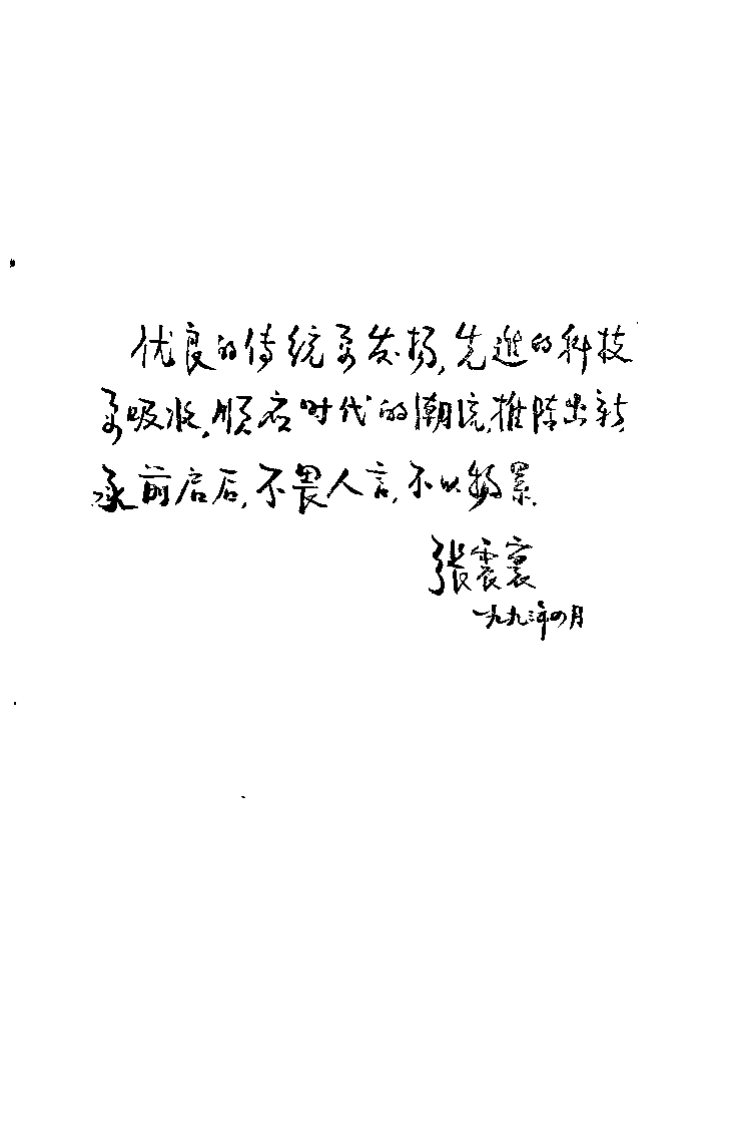 优良的传统要发扬,先進的科技
要吸收,顺应时代的潮流,推陈出新,
承前启后,不畏人言,不以物累.
張震寰
一九九三年四月